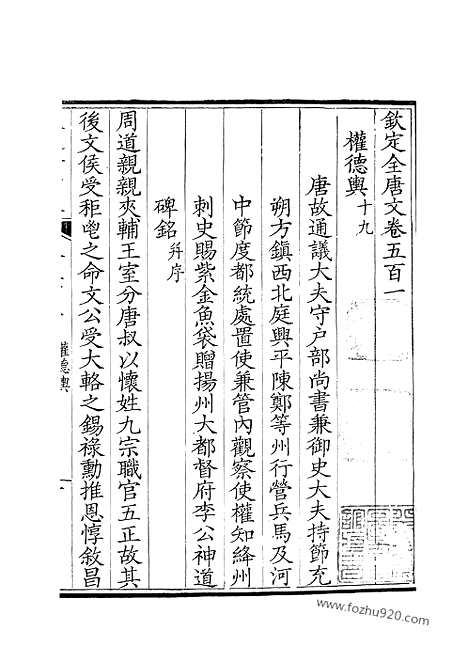 欽定全唐文卷五百一
權德輿十九
唐故通議大夫守户部尚書兼御史大夫持節充
朔方鎮西北庭興平陳鄭等州行營兵馬及河
中節度都統處置使兼管內觀察使權知絳州
刺史賜紫金魚袋贈揚州大都督府李公神道
碑銘并序
周道親親夾輔王室分唐叔以懷姓九宗職官五正故其
後文侯受秬鬯之命文公受大輅之錫祿勳推恩惇敘昌
權德輿
一
www.fozhu920.com